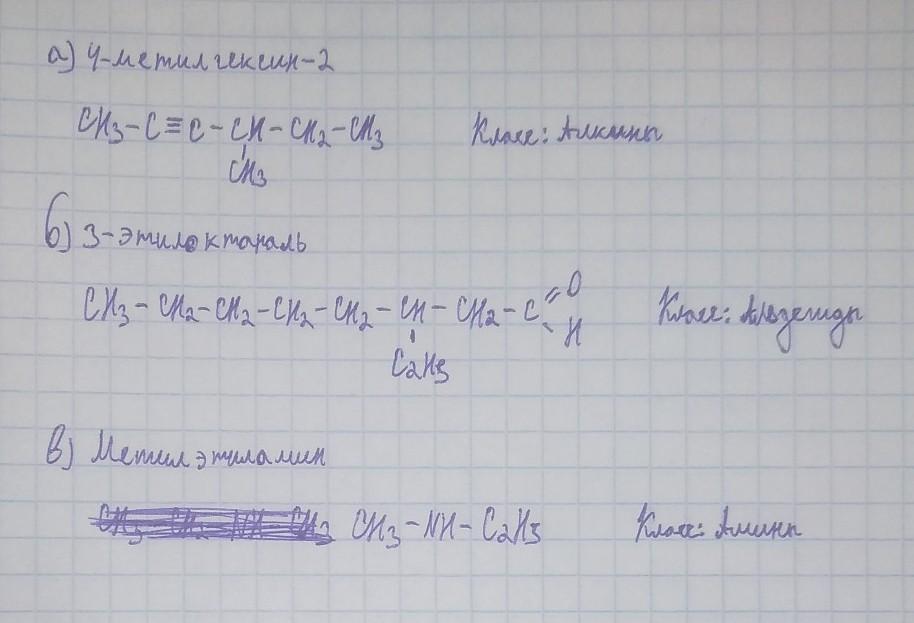 а) 4-метилгексин-2
CH3-C≡C-CH-CH2-CH3 Класс: Алкины
CH3
б) 3-этилоктаналь
CH3-CH2-CH2-CH2-CH2-CH-CH2-C=O Класс: Альдегиды
H
C2H5
в) Метилэтиламин
CH3-CH2-NH-CH3 CH3-NH-C2H5 Класс: Амины